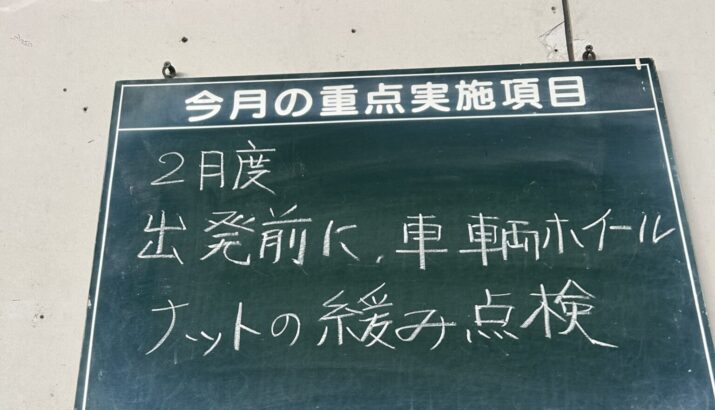 今月の重点実施項目
2月度
出発前に、車車輌ホイール
ナットの緩み点検